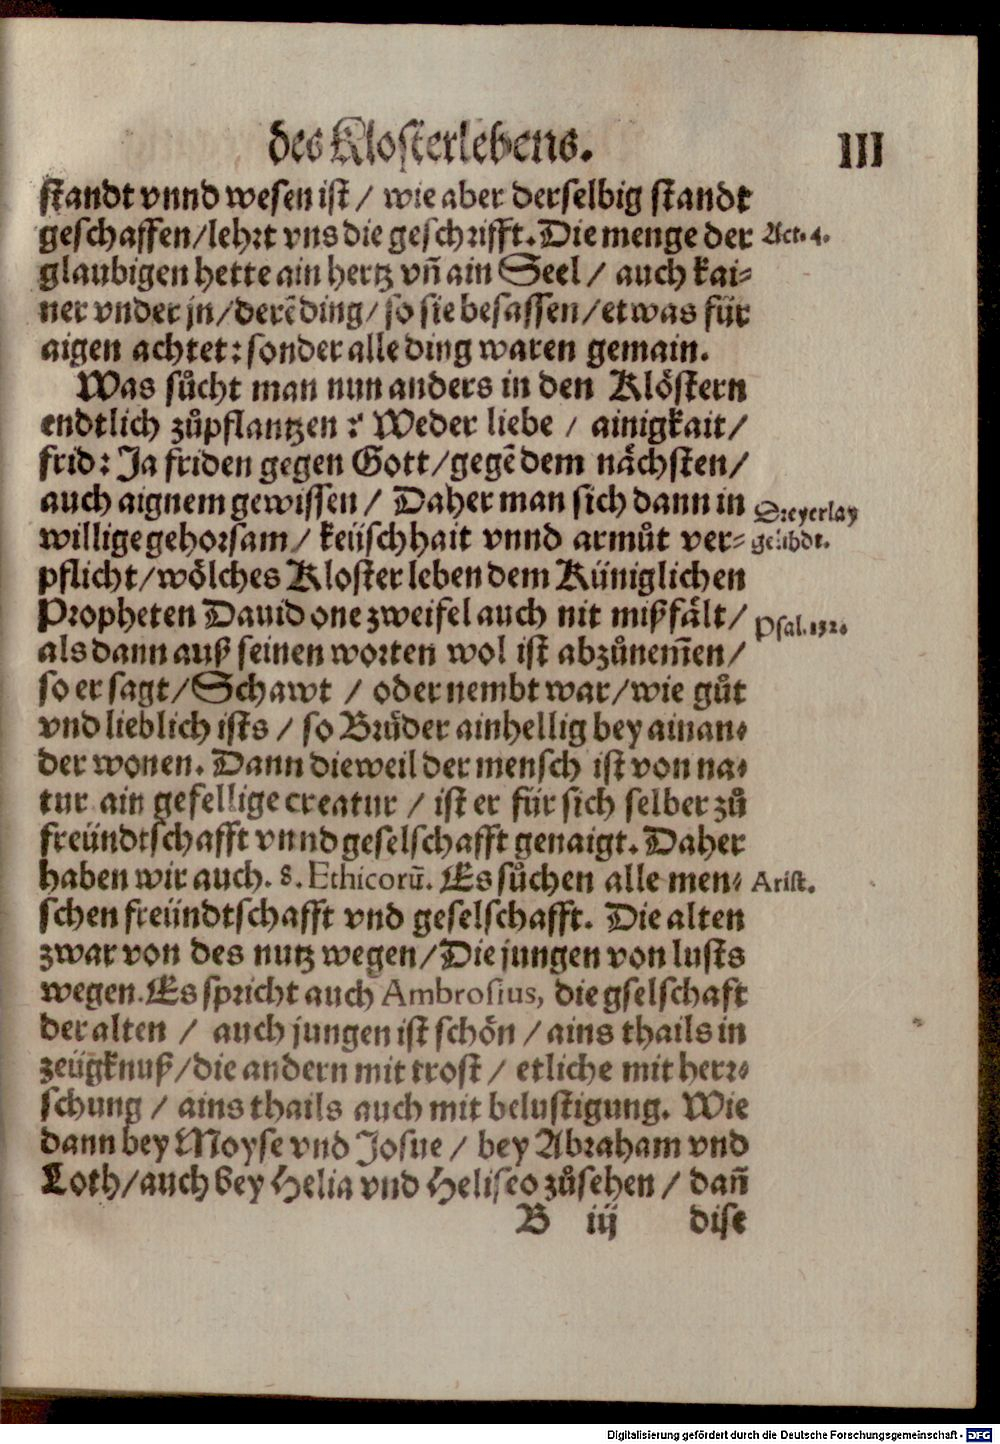 des Klosterlebens. III
standt vnnd wesen ist / wie aber derselbig standt
geschaffen/lehrt vns die geschrifft. Die menge der Act. 4.
glaubigen hette ain hertz vñ ain Seel / auch kai-
ner vnder jn/derẽ ding/ so sie besassen/etwas für
aigen achtet: sonder alle ding waren gemain.
Was sůcht man nun anders in den Klöstern
endtlich zůpflantzen? Weder liebe / ainigkait/
frid: Ja friden gegen Gott/gegẽ dem nächsten/
auch aignem gewissen / Daher man sich dann in Dreyerlay
willige gehorsam/ keüschhait vnnd armůt ver- gelübdt.
pflicht/wölches Kloster leben dem Küniglichen
Propheten Dauid one zweifel auch nit mißfält/ Psal. 132.
als dann auß seinen worten wol ist abzůnem̃en/
so er sagt/Schawt / oder nembt war/wie gůt
vnd lieblich ists / so Brůder ainhellig bey ainan-
der wonen. Dann dieweil der mensch ist von na-
tur ain gesellige creatur / ist er für sich selber zů
freündtschafft vnnd geselschafft genaigt. Daher
haben wir auch. 8. Ethicorũ. Es sůchen alle men- Arist.
schen freündtschafft vnd geselschafft. Die alten
zwar von des nutz wegen/Die jungen von lusts
wegen. Es spricht auch Ambrosius, die gselschaft
der alten / auch jungen ist schön / ains thails in
zeügknuß/die andern mit trost / etliche mit herr-
schung / ains thails auch mit belustigung. Wie
dann bey Moyse vnd Josue / bey Abraham vnd
Loth/auch bey Helia vnd Heliseo zůsehen / dañ
B iij dise
Digitalisierung gefördert durch die Deutsche Forschungsgemeinschaft - DFG